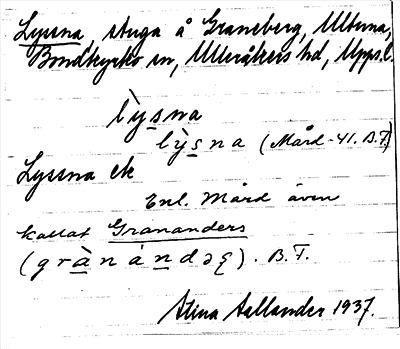 Lyssna, stuga å Graneberg, Ultuna,
Bondkyrko sn, Ulleråkers hd, Upps. l.
lỳsna
lỳsna (Mård -41. B.T.)
Lyssna ek
Enl. Mård även
kallat Grananders
(grànándəʂ). B.T.
Stina Sellander 1937.